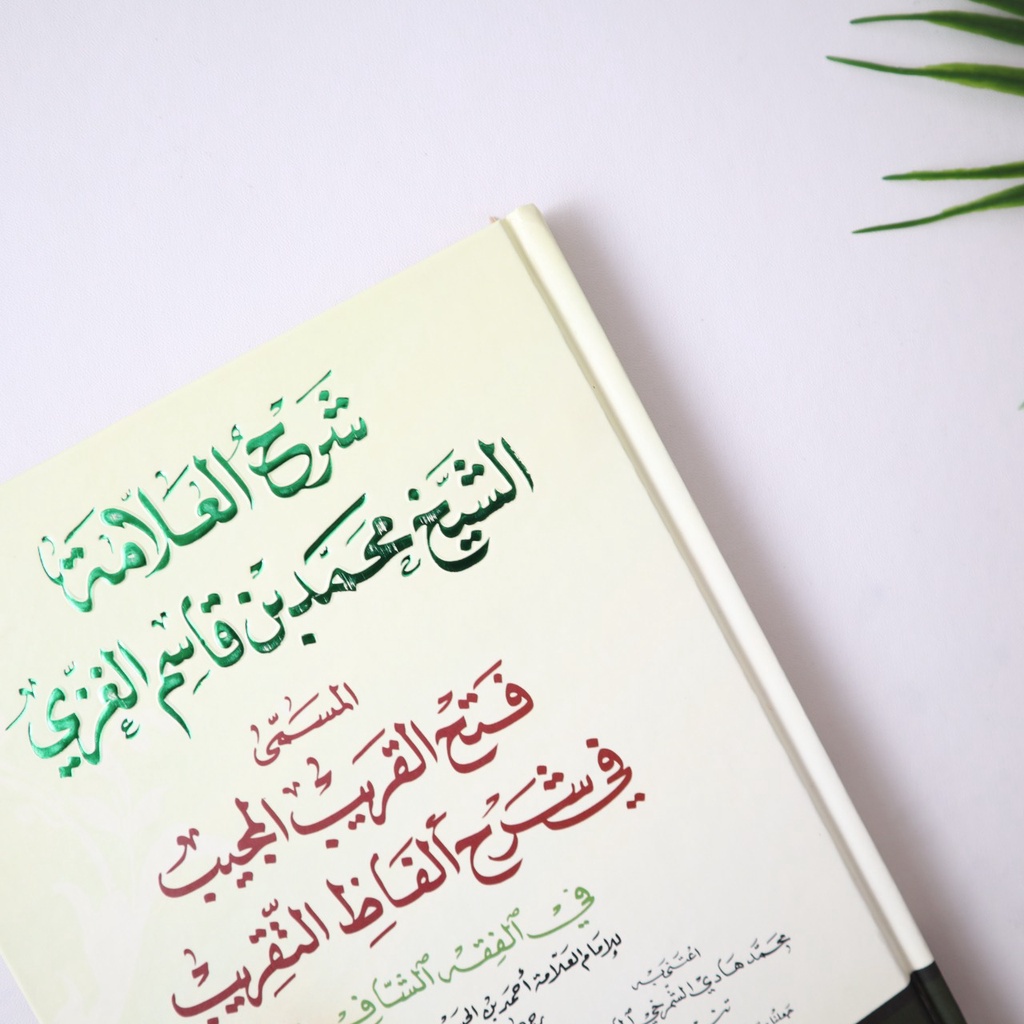 شَرْحُ العَلَّامَة
الشَّيْخ مُحَمَّد بْن قَاسِم الغَزِّي
المُسَمَّى
فَتْحُ القَرِيْبِ المُجِيْب
فِي شَرْحِ أَلْفَاظِ التَّقْرِيْب
فِي الفِقْهِ الشَّافِ
للإمام العلّامة أحمد بن
اعْتَنَى بِهِ
محمّد هادي الشمرخي